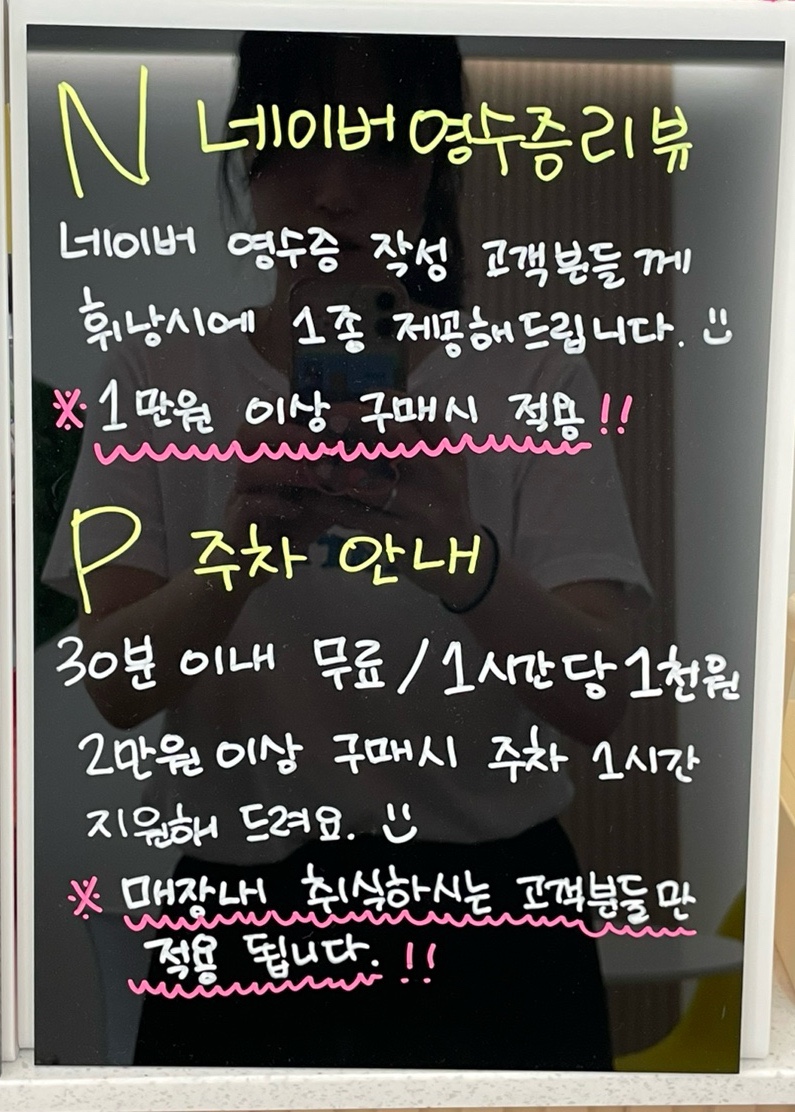 N 네이버영수증리뷰
네이버 영수증 작성 고객분들께
휘낭시에 1종 제공해드립니다.
※ 1만원 이상 구매시 적용!!
P 주차 안내
30분 이내 무료/1시간당 1천원
2만원 이상 구매시 주차 1시간
지원해 드려요.
※ 매장내 취식하시는 고객분들만
적용 됩니다. !!